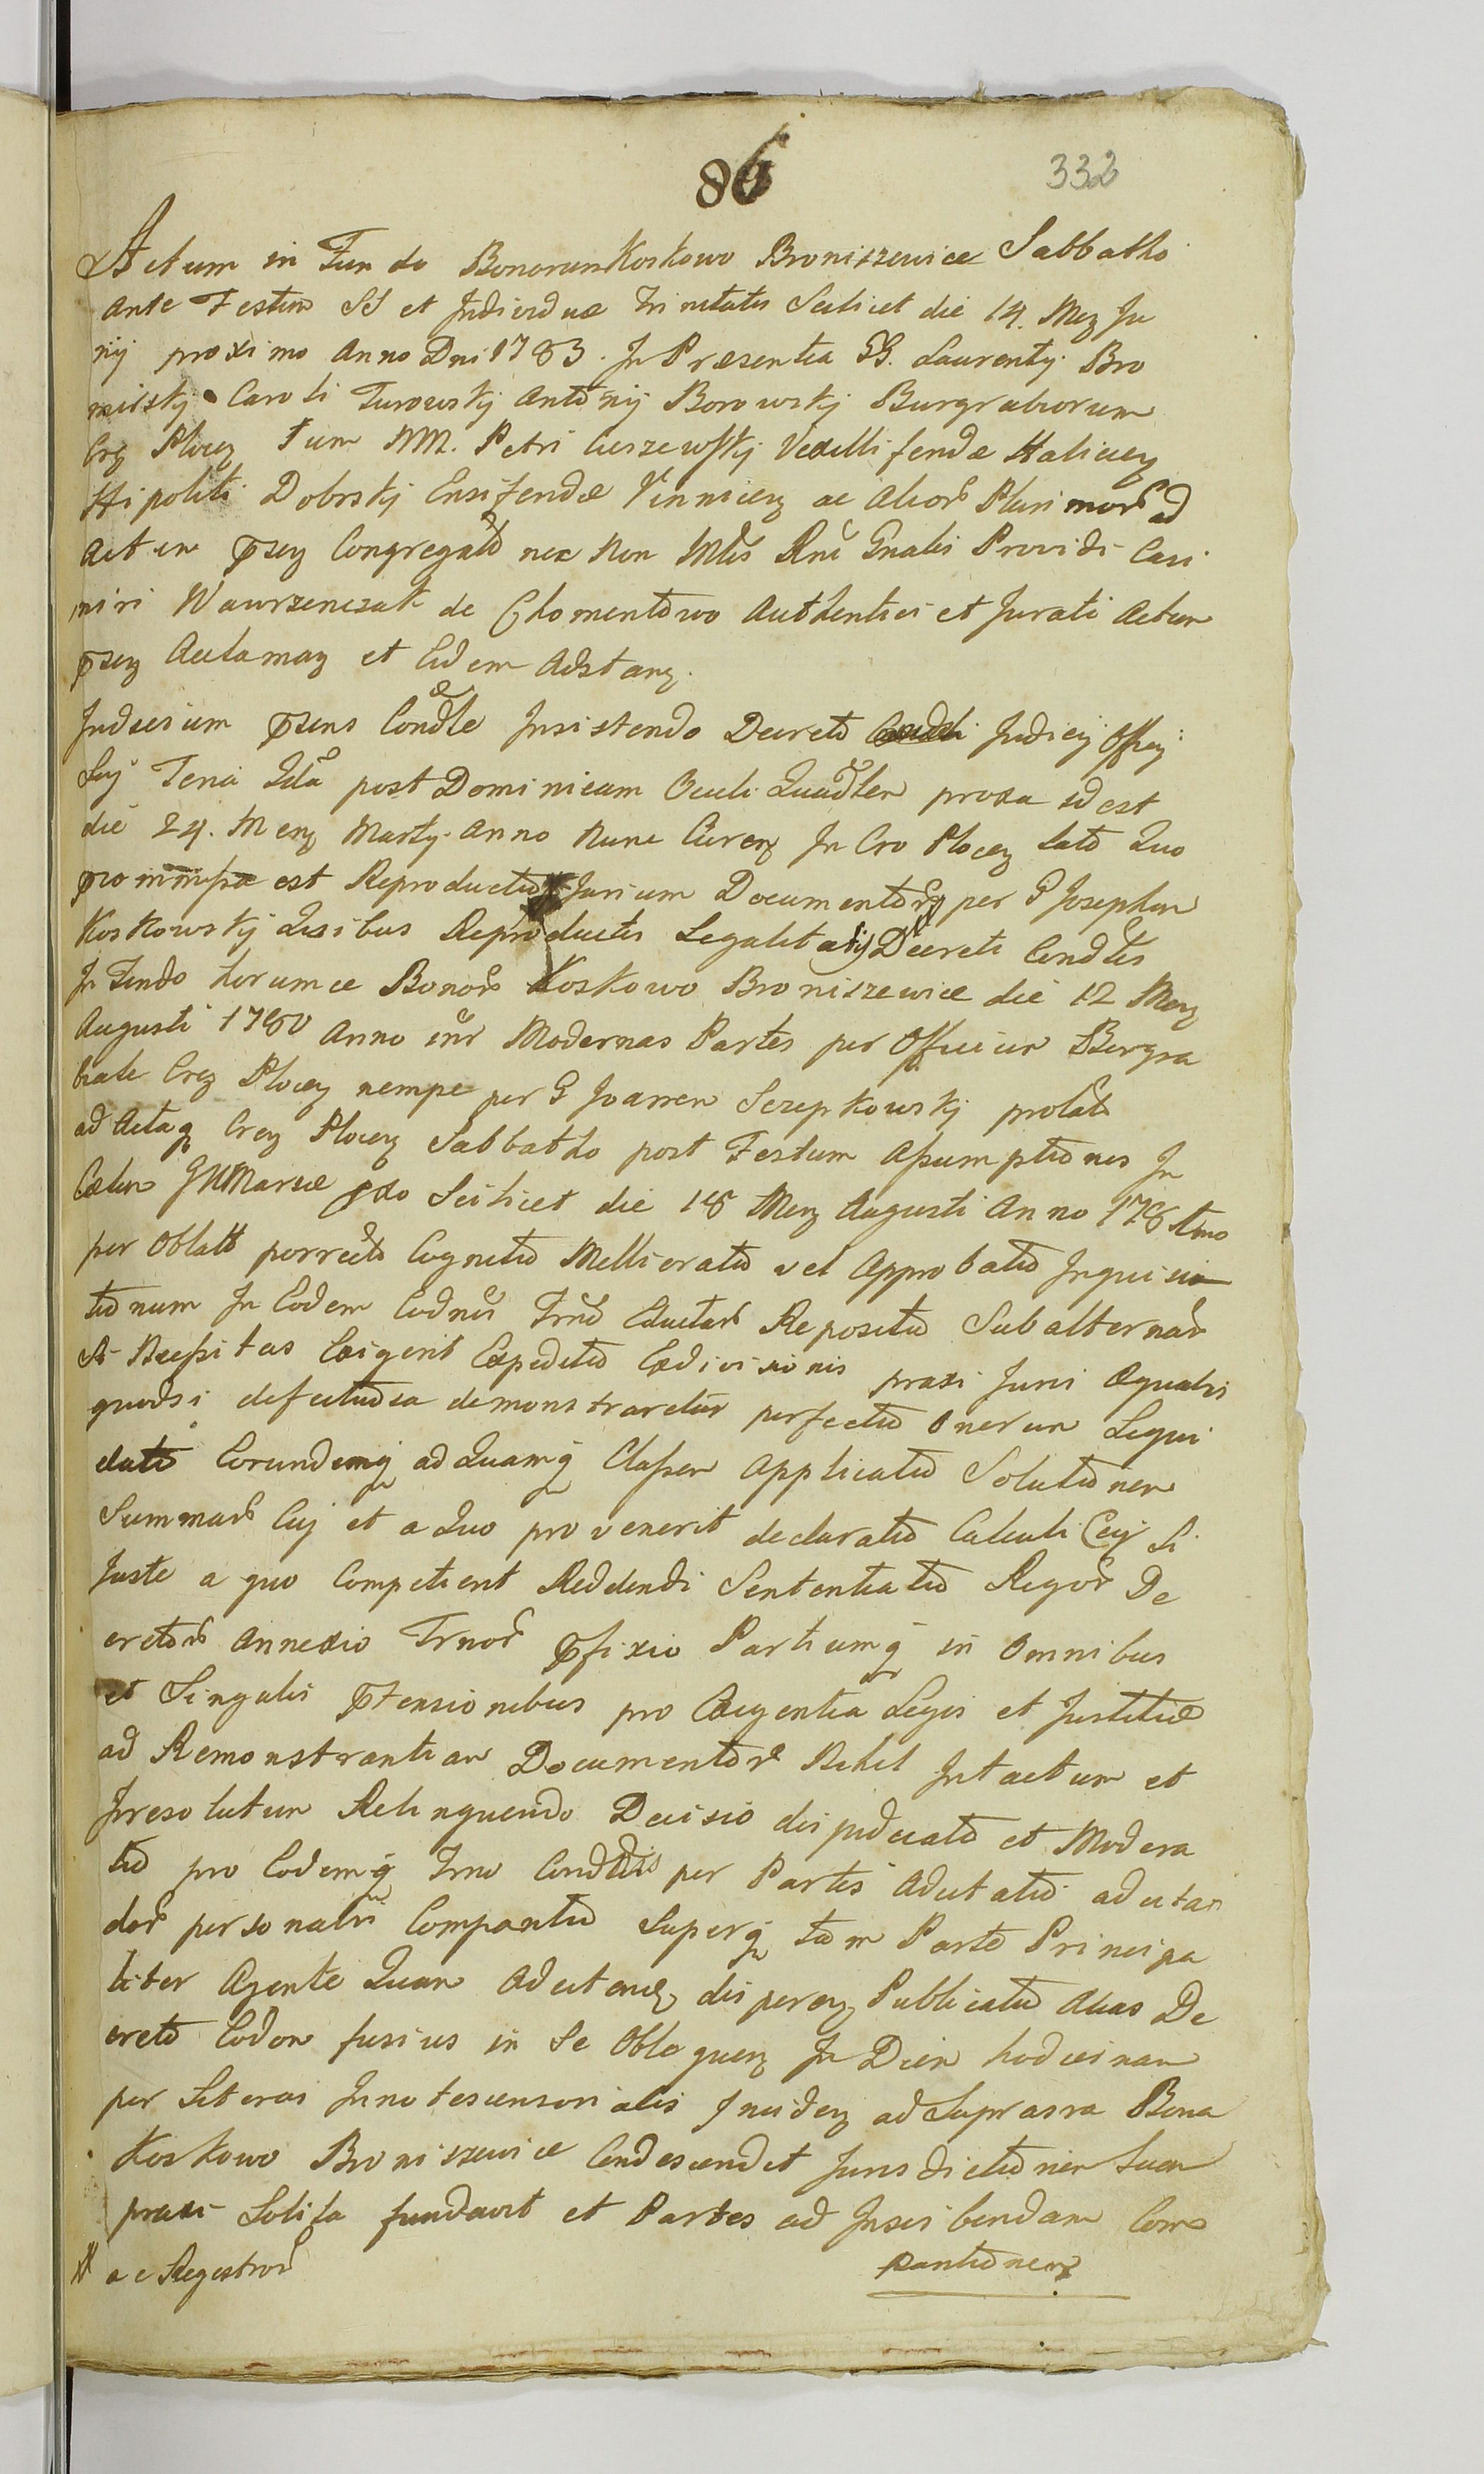 86
332
Actum in Fundo Bonorum Koskowo Broniszewice Sabbatho
ante Festum SS et Individuae Trinitatis Scilicet die 14. Mez Ju
nij proximo Anno Dni 1783. In Praesentia GG. Laurentij Bro
mirskj Caroli Turowskj Antonij Borowskj Burgrabiorum
Crz Plocz Tum MM. Petri Vexilliferidae Haliciez
Hipoliti Dobrskj Ensiferidae Vinnicez ac Alior Plurimor ad
Actum psez Congregato nec Non Mtis Rni Gnalis Providi Casi
miri Wawrzenczak de Chomentowo Authentici et Jurati Actum
psez Acclamaz et Eidem Adstanz.
Judicium psens Condle Insistendo Decreto Judicij Officij
Suj Feria 2da post Dominicam Oculi Quadler proxa idest
die 24. Menz Martij Anno Nunc Curenz In Cro Plocez lato Quo
promissa est Reproductio Jurium Documentorq per G Josephum
Koskowskj Quibus Reproductis Legalitatis Decreti Condlis
In Fundo horumce Bonor Koskowo Broniszewice die 12 Menz
Augusti 1780 Anno inr Modernas Partes per Officium Burgra
biale Crez Plocez nempe per G Joannem Szepkowskj prolato
ad Actaq Crez Plocez Sabbatho post Festum Assumptionis In
Caelum Mariae pxo Scilicet die 18 Menz Augusti Anno 178
per Oblatt porrecto Cognitio Mellioratio vel Approbatio Inquisi
tionum In Eodem Trno Eductar Repositio Subalternar
Si Necessitas Exigerit Expeditio Exdivisionis praxi Juri Aequalis
quodsi defectuosa demonstraretur perfectio Onerum Liqui
datio Eorundemq ad Quamq Classem Applicatio Solutionem
Summar Cuj et a Quo provenerit declaratio Calculi Cuj Si
Juste a quo Competierit Reddendi Sententiatio Rigor De
cretor Annexio Trnor pfixio Partiumq in Omnibus
et Singulis ptensionibus pro Exigentia Legis et Justitiae
ad Remonstrantiam Documentor Nihil Intactum et
Irresolutum Relinquendo Decisio dijudicatio et Modera
tio pro Eodemq Trno per Partes Adcitatio adcitan
dor personalri Comparitio Superq tam Parte Principa
liter Agente Quam Adcitanz Publicatio Alias De
creto Eodem fusius in Se Obloquenz In Diem hodiernam
per Literas Innotescensoriales Incidenz ad Suprasra Bona
Koskowo Broniszewice Condescendit Jurisdictionem Suam
praxi Solita fundavit et Partes ad Inscribendam Com
ac Regestror
parationem